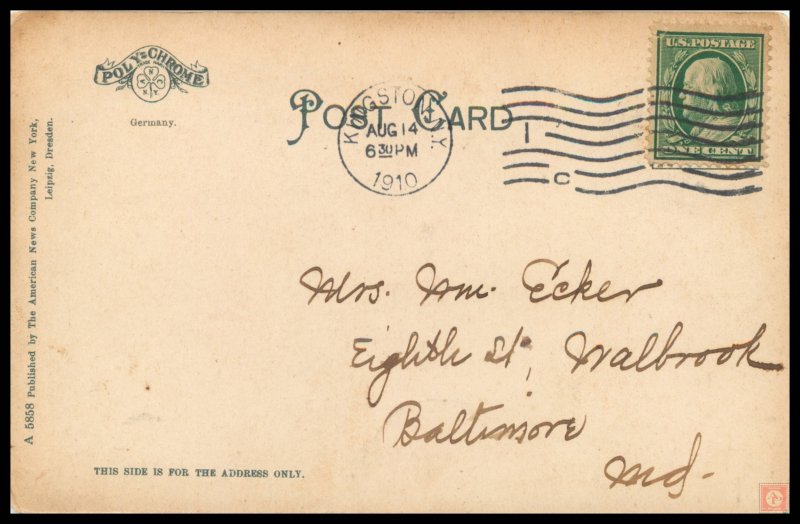 POLY-CHROME
TRADE MARK
A N C
N.Y.
Germany.
POST CARD
KINGSTON, N.Y.
AUG 14
6 30 PM
1910
1
C
U.S. POSTAGE
ONE CENT
A 5858 Published by The American News Company New York,
Leipzig, Dresden.
Mrs. Wm. Ecker
Eighth St, Walbrook
Baltimore
Md.
THIS SIDE IS FOR THE ADDRESS ONLY.